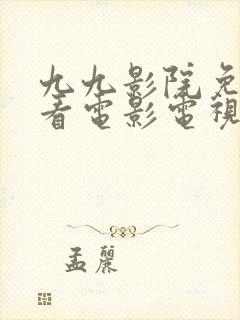 九九影院免
看電影電視
孟麗